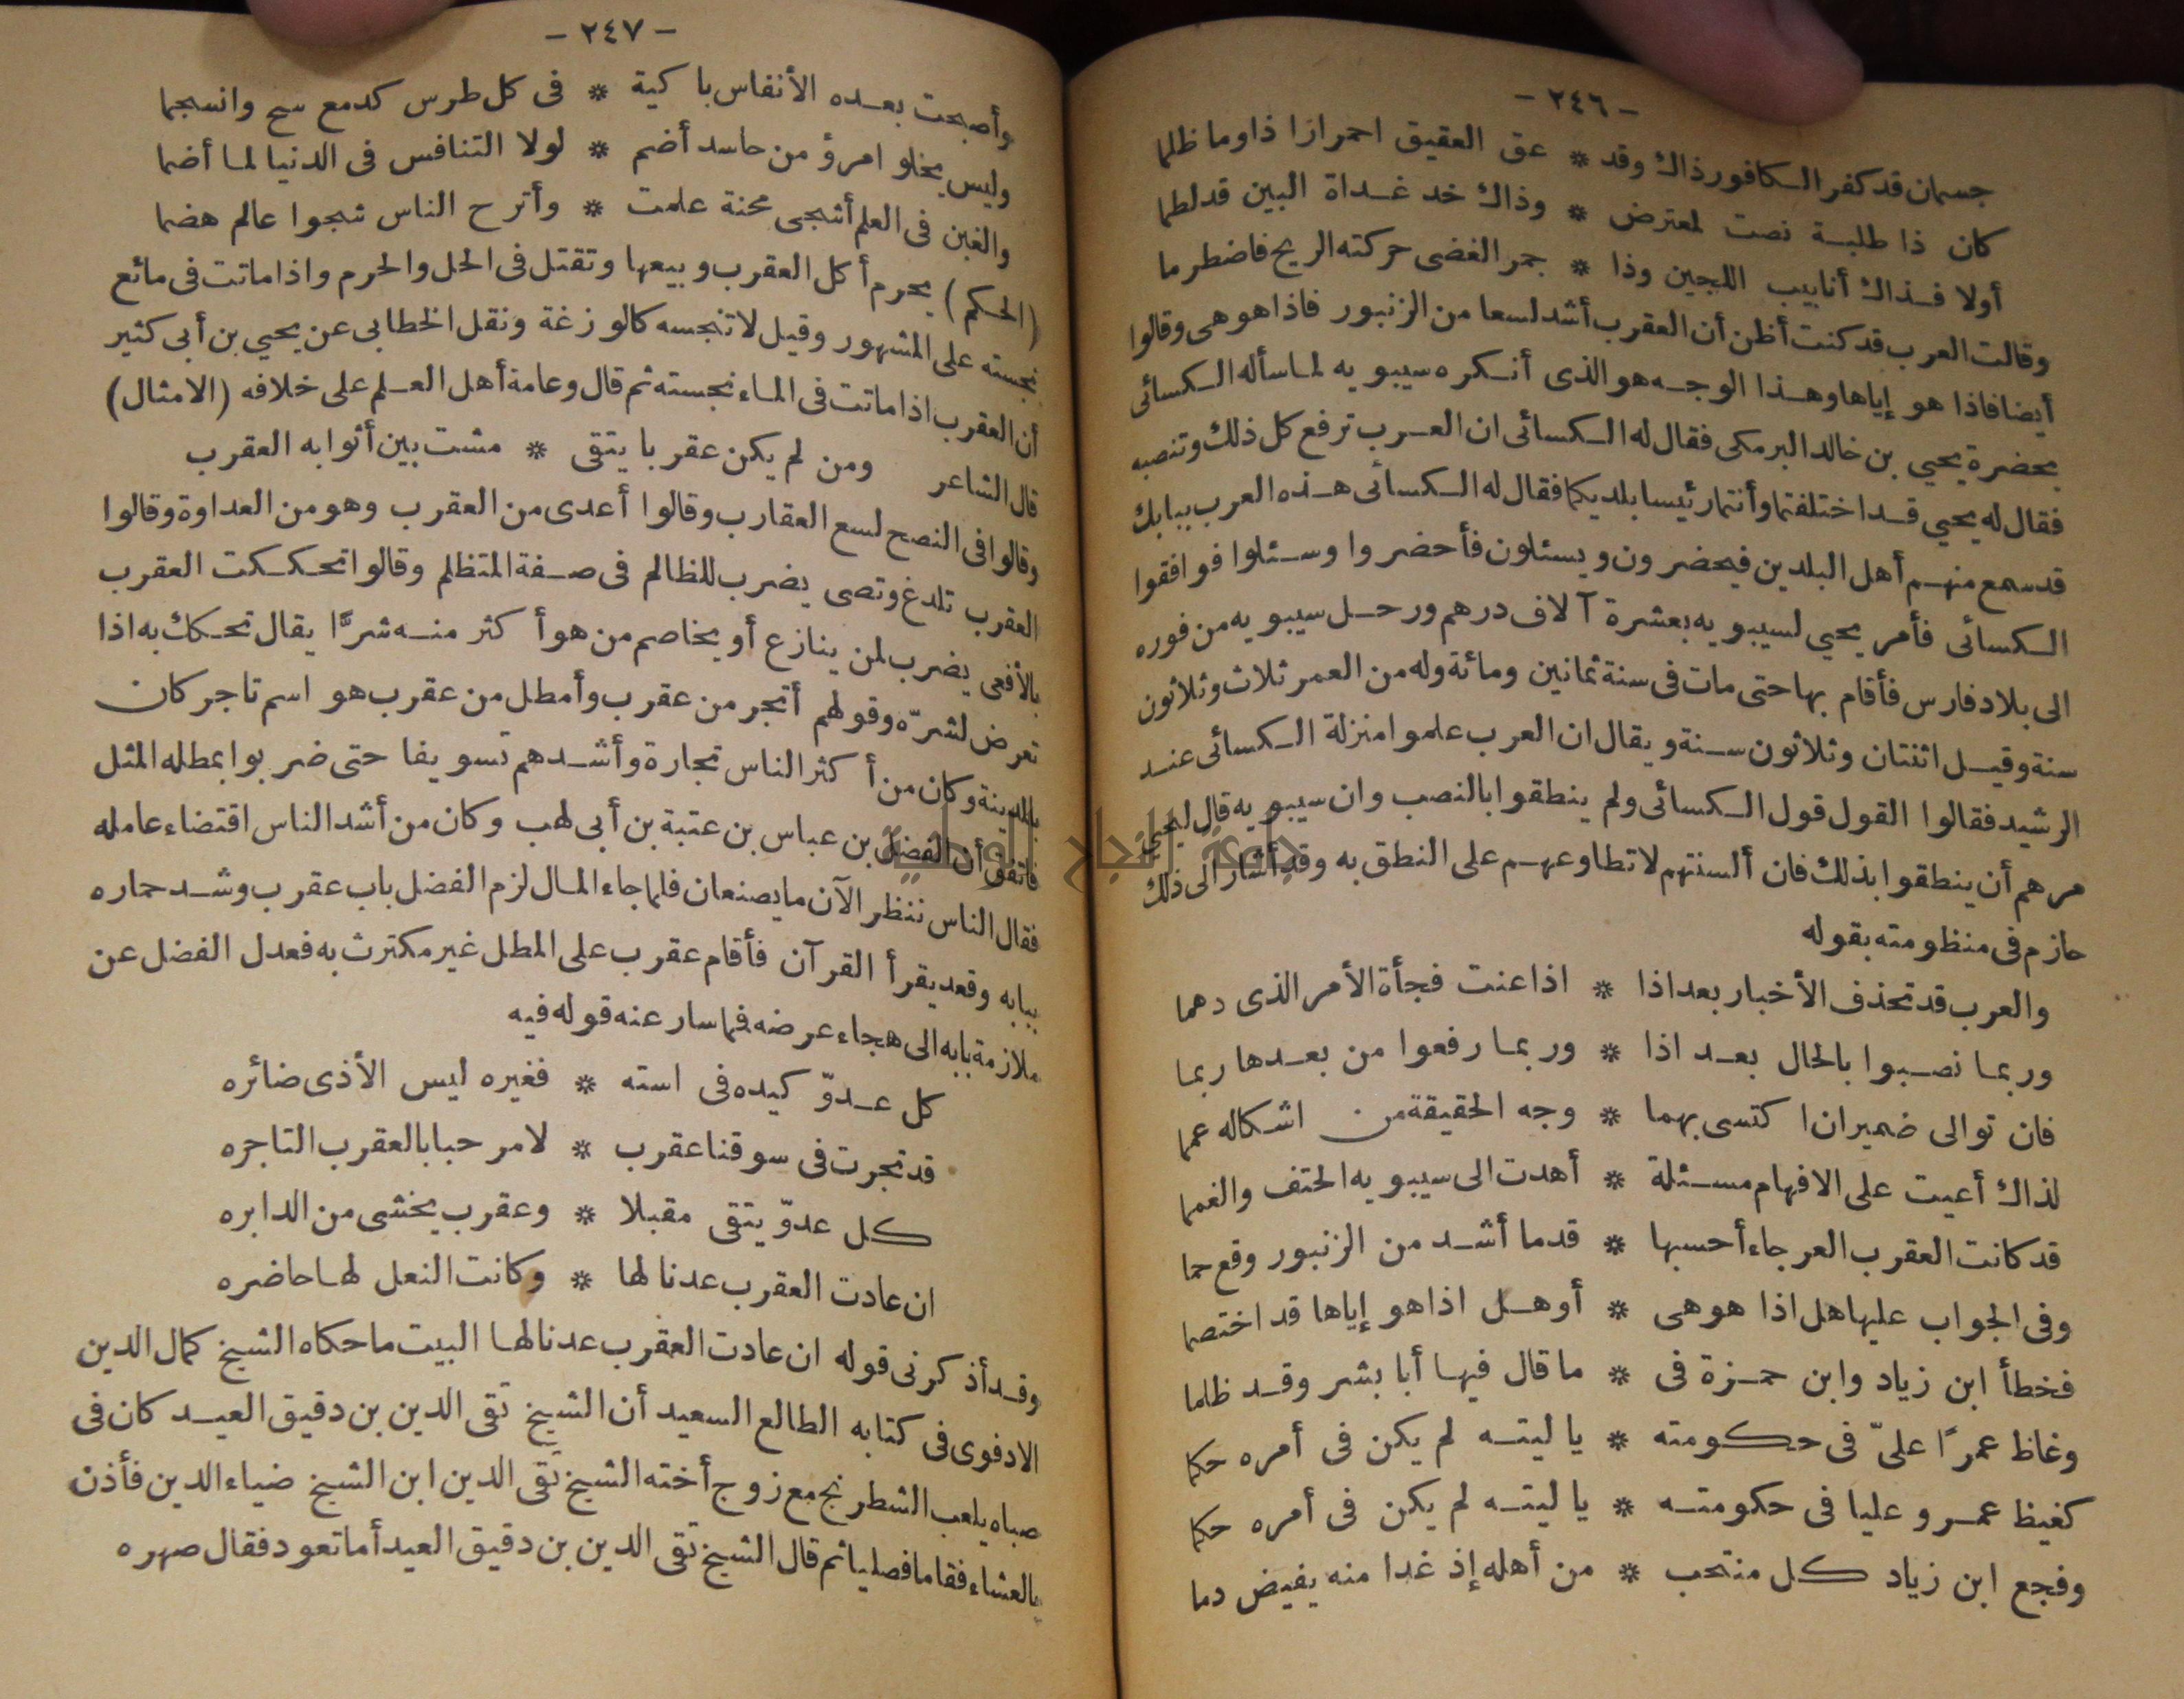 - ٢٤٦ -
جسمان قد كفر الكافور ذاك وقد * عق العقيق احمرارا ذا وما ظلما
كان ذا طلبة نصت لمعترض * وذاك خد غداة البين قد لطما
أولا فذاك أنابيب اللجين وذا * جمر الغضى حركته الريح فاضطرما
وقالت العرب قد كنت أظن أن العقرب أشد لسعا من الزنبور فاذا هو هى وقالوا
أيضا فاذا هو إياها وهذا الوجه هو الذى أنكره سيبويه لما سأله الكسائى
بحضرة يحيي بن خالد البرمكى فقال له الكسائى ان العرب ترفع كل ذلك وتنصبه
فقال له يحيي قد اختلفتما وأنتما رئيسا بلديكما فقال له الكسائى هذه العرب ببابك
قد سمع منهم أهل البلدين فيحضرون ويسئلون فأحضروا وسئلوا فوافقوا
الكسائى فأمر يحيي لسيبويه بعشرة آلاف درهم ورحل سيبويه من فوره
الى بلاد فارس فأقام بها حتى مات فى سنة ثمانين ومائة وله من العمر ثلاث وثلاثون
سنة وقيل اثنتان وثلاثون سنة ويقال ان العرب علموا منزلة الكسائى عند
الرشيد فقالوا القول قول الكسائى ولم ينطقوا بالنصب وان سيبويه قال ليحيي
مرهم أن ينطقوا بذلك فان ألسنتهم لا تطاوعهم على النطق به وقد أشار الى ذلك
حازم فى منظومته بقوله
والعرب قد تحذف الأخبار بعد اذا * اذا عنت فجأة الأمر الذى دهما
وربما نصبوا بالحال بعد اذا * وربما رفعوا من بعدها ربما
فان توالى ضميران اكتسى بهما * وجه الحقيقة من اشكاله عمما
لذاك أعيت على الافهام مسئلة * أهدت الى سيبويه الحتف والغمما
قد كانت العقرب العرجاء أحسبها * قدما أشد من الزنبور وقع حما
وفى الجواب عليها هل اذا هو هى * أو هل اذا هو إياها قد اختصما
فخطأ ابن زياد وابن حمزة فى * ما قال فيها أبا بشر وقد ظلما
وغاظ عمرًا علىّ فى حكومته * يا ليته لم يكن فى أمره حكما
كغيظ عمرو عليا فى حكومته * يا ليته لم يكن فى أمره حكما
وفجع ابن زياد كل منتحب * من أهله إذ غدا منه يفيض دما
- ٢٤٧ -
وأصبحت بعده الأنفاس باكية * فى كل طرس كدمع سح وانسجما
وليس يخلو امرؤ من حاسد أضم * لولا التنافس فى الدنيا لما أضما
والغبن فى العلم أشجى محنة علمت * وأترح الناس شجوا عالم هضما
(الحكم) يحرم أكل العقرب وبيعها وتقتل فى الحل والحرم واذا ماتت فى مائع
نجسته على المشهور وقيل لا تنجسه كالوزغة ونقل الخطابى عن يحيي بن أبى كثير
أن العقرب اذا ماتت فى الماء نجسته ثم قال وعامة أهل العلم على خلافه (الامثال)
قال الشاعر ومن لم يكن عقربا يتقى * مشت بين أثوابه العقرب
وقالوا فى النصح لسع العقارب وقالوا أعدى من العقرب وهو من العداوة وقالوا
العقرب تلدغ وتصى يضرب للظالم فى صفة المتظلم وقالوا تحككت العقرب
بالأفعى يضرب لمن ينازع أو يخاصم من هو أكثر منه شرًّا يقال تحكك به اذا
تعرض لشرّه وقولهم أتجر من عقرب وأمطل من عقرب هو اسم تاجر كان
بالمدينة وكان من أكثر الناس تجارة وأشدهم تسويفا حتى ضربوا بمطله المثل
فاتفق أن الفضل بن عباس بن عتبة بن أبى لهب وكان من أشد الناس اقتضاء عامله
فقال الناس ننظر الآن ما يصنعان فلما جاء المال لزم الفضل باب عقرب وشد حماره
ببابه وقعد يقرأ القرآن فأقام عقرب على المطل غير مكترث به فعدل الفضل عن
ملازمة بابه الى هجاء عرضه فما سار عنه قوله فيه
كل عدوّ كيده فى استه * فغيره ليس الأذى ضائره
قد تجرت فى سوقنا عقرب * لا مرحبا بالعقرب التاجره
كل عدوّ يتقى مقبلا * وعقرب يخشى من الدابره
ان عادت العقرب عدنا لها * وكانت النعل لها حاضره
وقد أذكرنى قوله ان عادت العقرب عدنا لها البيت ما حكاه الشيخ كمال الدين
الادفوى فى كتابه الطالع السعيد أن الشيخ تقى الدين بن دقيق العيد كان فى
صباه يلعب الشطرنج مع زوج أخته الشيخ تقى الدين ابن الشيخ ضياء الدين فأذن
بالعشاء فقاما فصليا ثم قال الشيخ تقى الدين بن دقيق العيد أما تعود فقال صهره
جامعة النجاح الوطنية